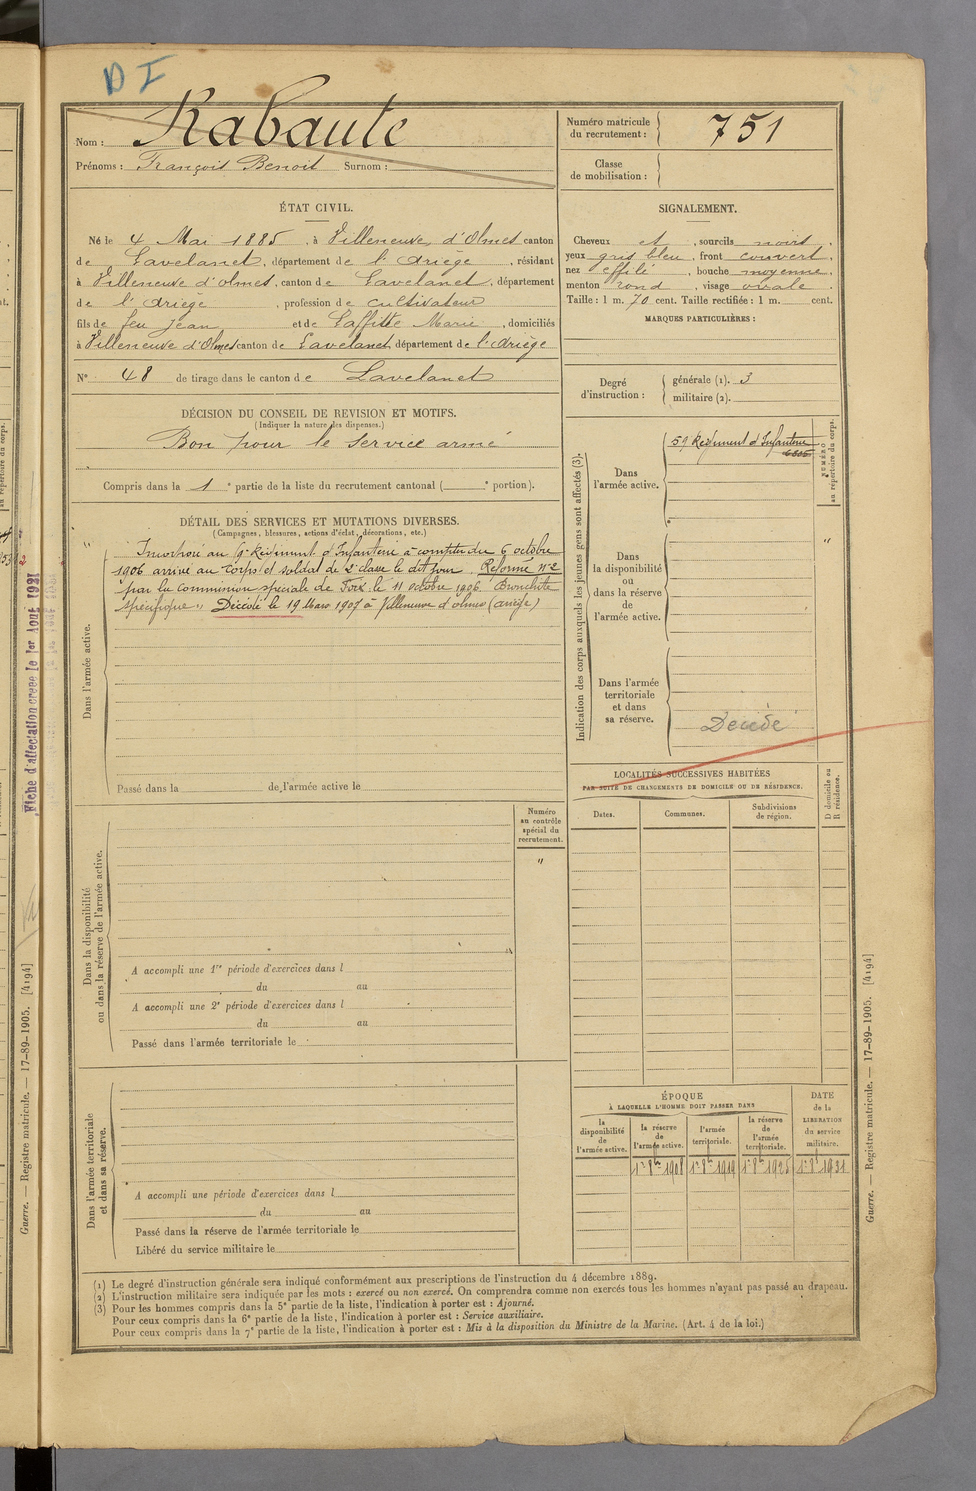 D I
Nom : Rabaute
Prénoms : François Benoit Surnom :
Numéro matricule
du recrutement : 751
Classe
de mobilisation :
ÉTAT CIVIL.
Né le 4 Mai 1885, à Villeneuve d'Olmes canton
de Lavelanet, département de l'Ariège, résidant
à Villeneuve d'olmes, canton de Lavelanet, département
de l'Ariège, profession de cultivateur
fils de feu Jean et de Laffitte Marie, domiciliés
à Villeneuve d'Olmes canton de Lavelanet, département de l'Ariège
N° 48 de tirage dans le canton de Lavelanet
SIGNALEMENT.
Cheveux et, sourcils noirs,
yeux gris bleu, front couvert,
nez effilé, bouche moyenne,
menton rond, visage ovale.
Taille : 1 m. 70 cent. Taille rectifiée : 1 m. cent.
MARQUES PARTICULIÈRES :
Degré
d'instruction :
générale (1). 3
militaire (2).
DÉCISION DU CONSEIL DE REVISION ET MOTIFS.
(Indiquer la nature des dispenses.)
Bon pour le service armé
Compris dans la 1e partie de la liste du recrutement cantonal ( e portion).
DÉTAIL DES SERVICES ET MUTATIONS DIVERSES.
(Campagnes, blessures, actions d'éclat, décorations, etc.)
Dans l'armée active.
au Régiment d'Infanterie à compter du 6 octobre
1906 arrivé au corps et soldat de 2e classe le dit jour. Réformé n°2
par la commission spéciale de Foix le 11 octobre 1906 "Bronchite
spécifique". Décédé le 19 Mars 1907 à Villeneuve d'olmes (ariège)
Passé dans la de l'armée active le
Indication des corps auxquels les jeunes gens sont affectés (3).
Dans
l'armée active.
59 Régiment d'Infanterie
NUMÉRO
au répertoire du corps.
Dans
la disponibilité
ou
dans la réserve
de
l'armée active.
"
Dans l'armée
territoriale
et dans
sa réserve.
Décédé
LOCALITÉS SUCCESSIVES HABITÉES
PAR SUITE DE CHANGEMENTS DE DOMICILE OU DE RÉSIDENCE.
Dates.
Communes.
Subdivisions
de région.
D domicile ou
R résidence.
Numéro
au contrôle
spécial du
recrutement.
"
Dans la disponibilité
ou dans la réserve de l'armée active.
A accompli une 1re période d'exercices dans l
du au
A accompli une 2e période d'exercices dans l
du au
Passé dans l'armée territoriale le
Dans l'armée territoriale
et dans sa réserve.
A accompli une période d'exercices dans l
du au
Passé dans la réserve de l'armée territoriale le
Libéré du service militaire le
ÉPOQUE
À LAQUELLE L'HOMME DOIT PASSER DANS
la
disponibilité
de
l'armée active.
la réserve
de
l'armée active.
l'armée
territoriale.
la réserve
de
l'armée
territoriale.
DATE
de la
LIBÉRATION
du service
militaire.
1er 8bre 1908 1er 8bre 1919 1er 8bre 1925 1er 8bre 1931
(1) Le degré d'instruction générale sera indiqué conformément aux prescriptions de l'instruction du 4 décembre 1889.
(2) L'instruction militaire sera indiquée par les mots : exercé ou non exercé. On comprendra comme non exercés tous les hommes n'ayant pas passé au drapeau.
(3) Pour les hommes compris dans la 5e partie de la liste, l'indication à porter est : Ajourné.
Pour ceux compris dans la 6e partie de la liste, l'indication à porter est : Service auxiliaire.
Pour ceux compris dans la 7e partie de la liste, l'indication à porter est : Mis à la disposition du Ministre de la Marine. (Art. 4 de la loi.)
Guerre. — Registre matricule. — 17-89-1905. [4194]
Guerre. — Registre matricule. — 17-89-1905. [4194]
Fiche d'affectation créée le 1er Août 1921
au répertoire du corps.